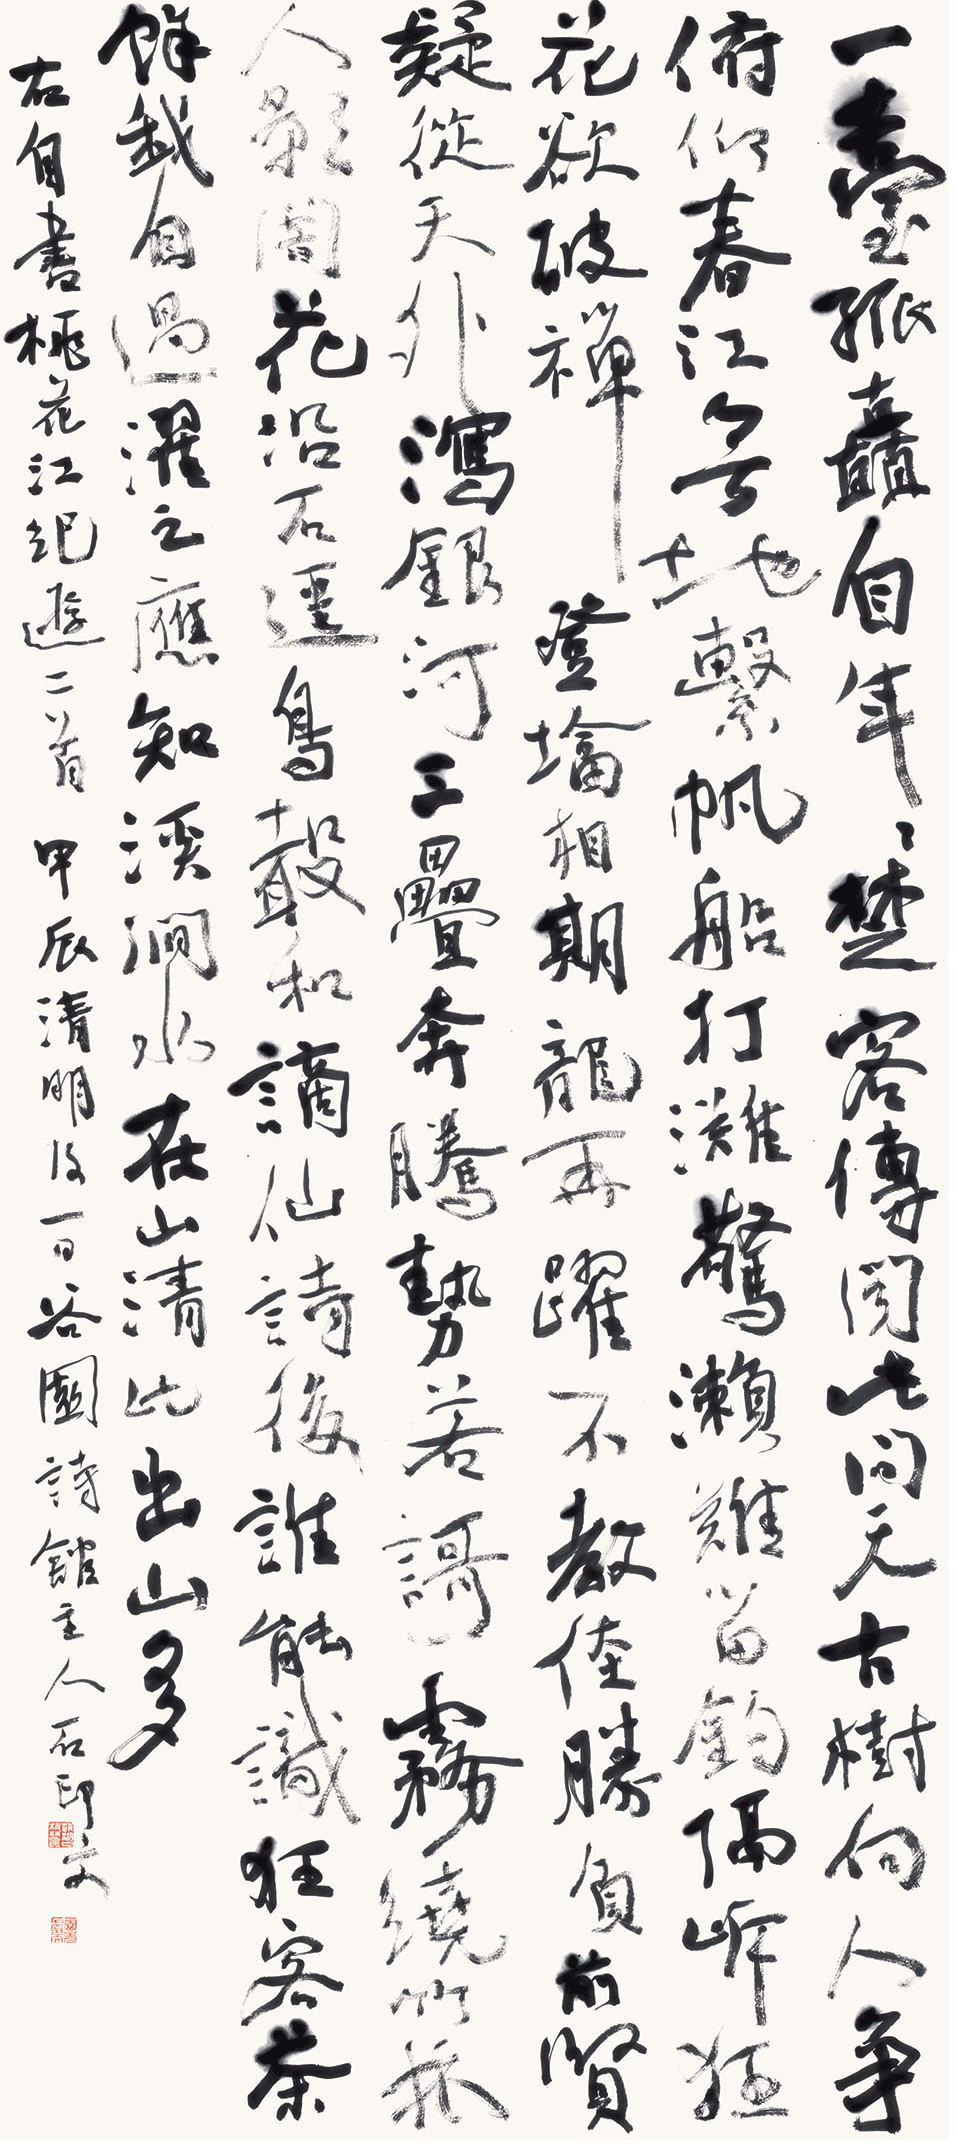 一臺孤矗自年〻楚客傳聞此問天古樹向人爭
俯仰春江無地繫帆船打灘驚瀨難留釣隔岸狂
花欲破禪 登墖相期龍再躍不教佳勝負前賢
疑從天外瀉銀河三疊奔騰勢若謌霧繞竹扶
人影闇花沿石逕鳥聲和謫仙詩後誰能識狂客茶
餘我自過濯之應知溪澗水在山清比出山多
右自書桃花江紀遊二首 甲辰清明後一日谷園詩館主人石印文